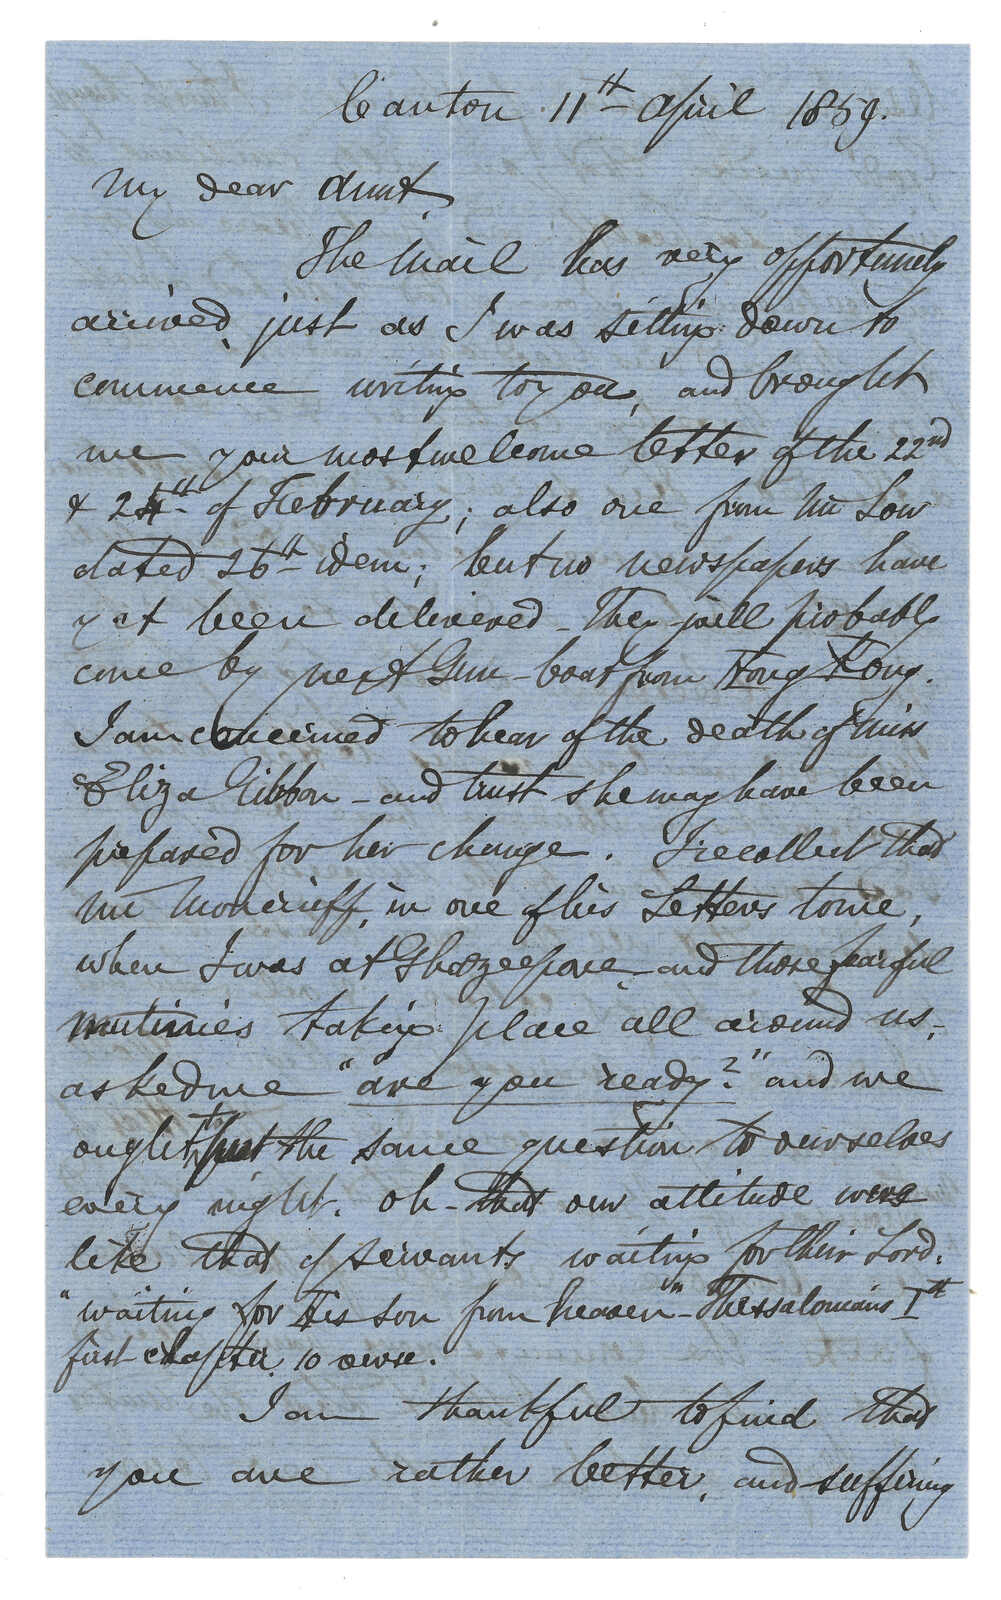 Canton 11th April 1859.
My dear Aunt,
The Mail has very opportunely
arrived, just as I was sitting down to
commence writing to you, and brought
me your most welcome letter of the 22nd
& 24th of February; also one from Mr Low
dated 26th idem; but no newspapers have
yet been delivered - They will probably
come by next Gun-boat from Hong Kong.
I am concerned to hear of the death of Miss
Eliza Gibbon - and trust she may have been
prepared for her change. I recollect that
Mr Moncrieff, in one of his Letters to me,
when I was at Ghazeepore, and those fearful
mutinies taking place all around us,
asked me "are you ready?" and we
ought to put the same question to ourselves
every night. Oh - that our attitude were
like that of servants waiting for their Lord.
"waiting for His son from heaven" - Thessalonians 1st
first chapter, 10 verse.
I am thankful to find that
you are rather better, and suffering